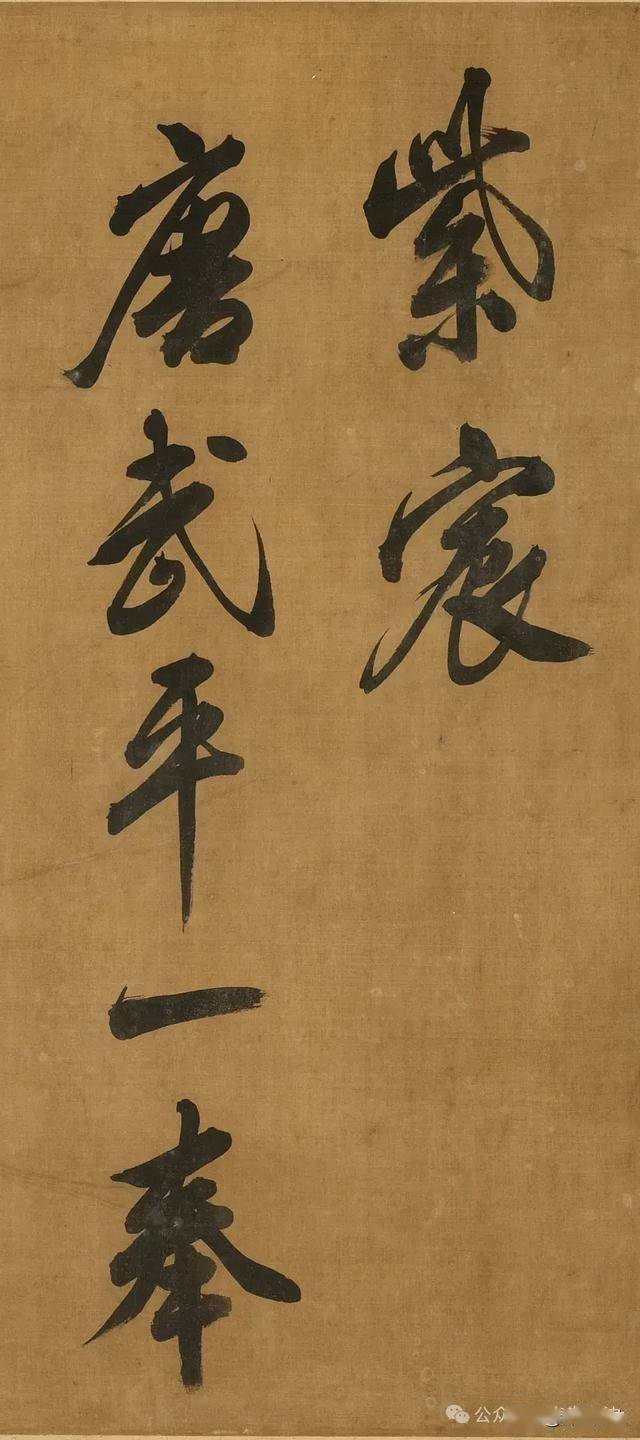 紫宸
唐武平一奉
公众